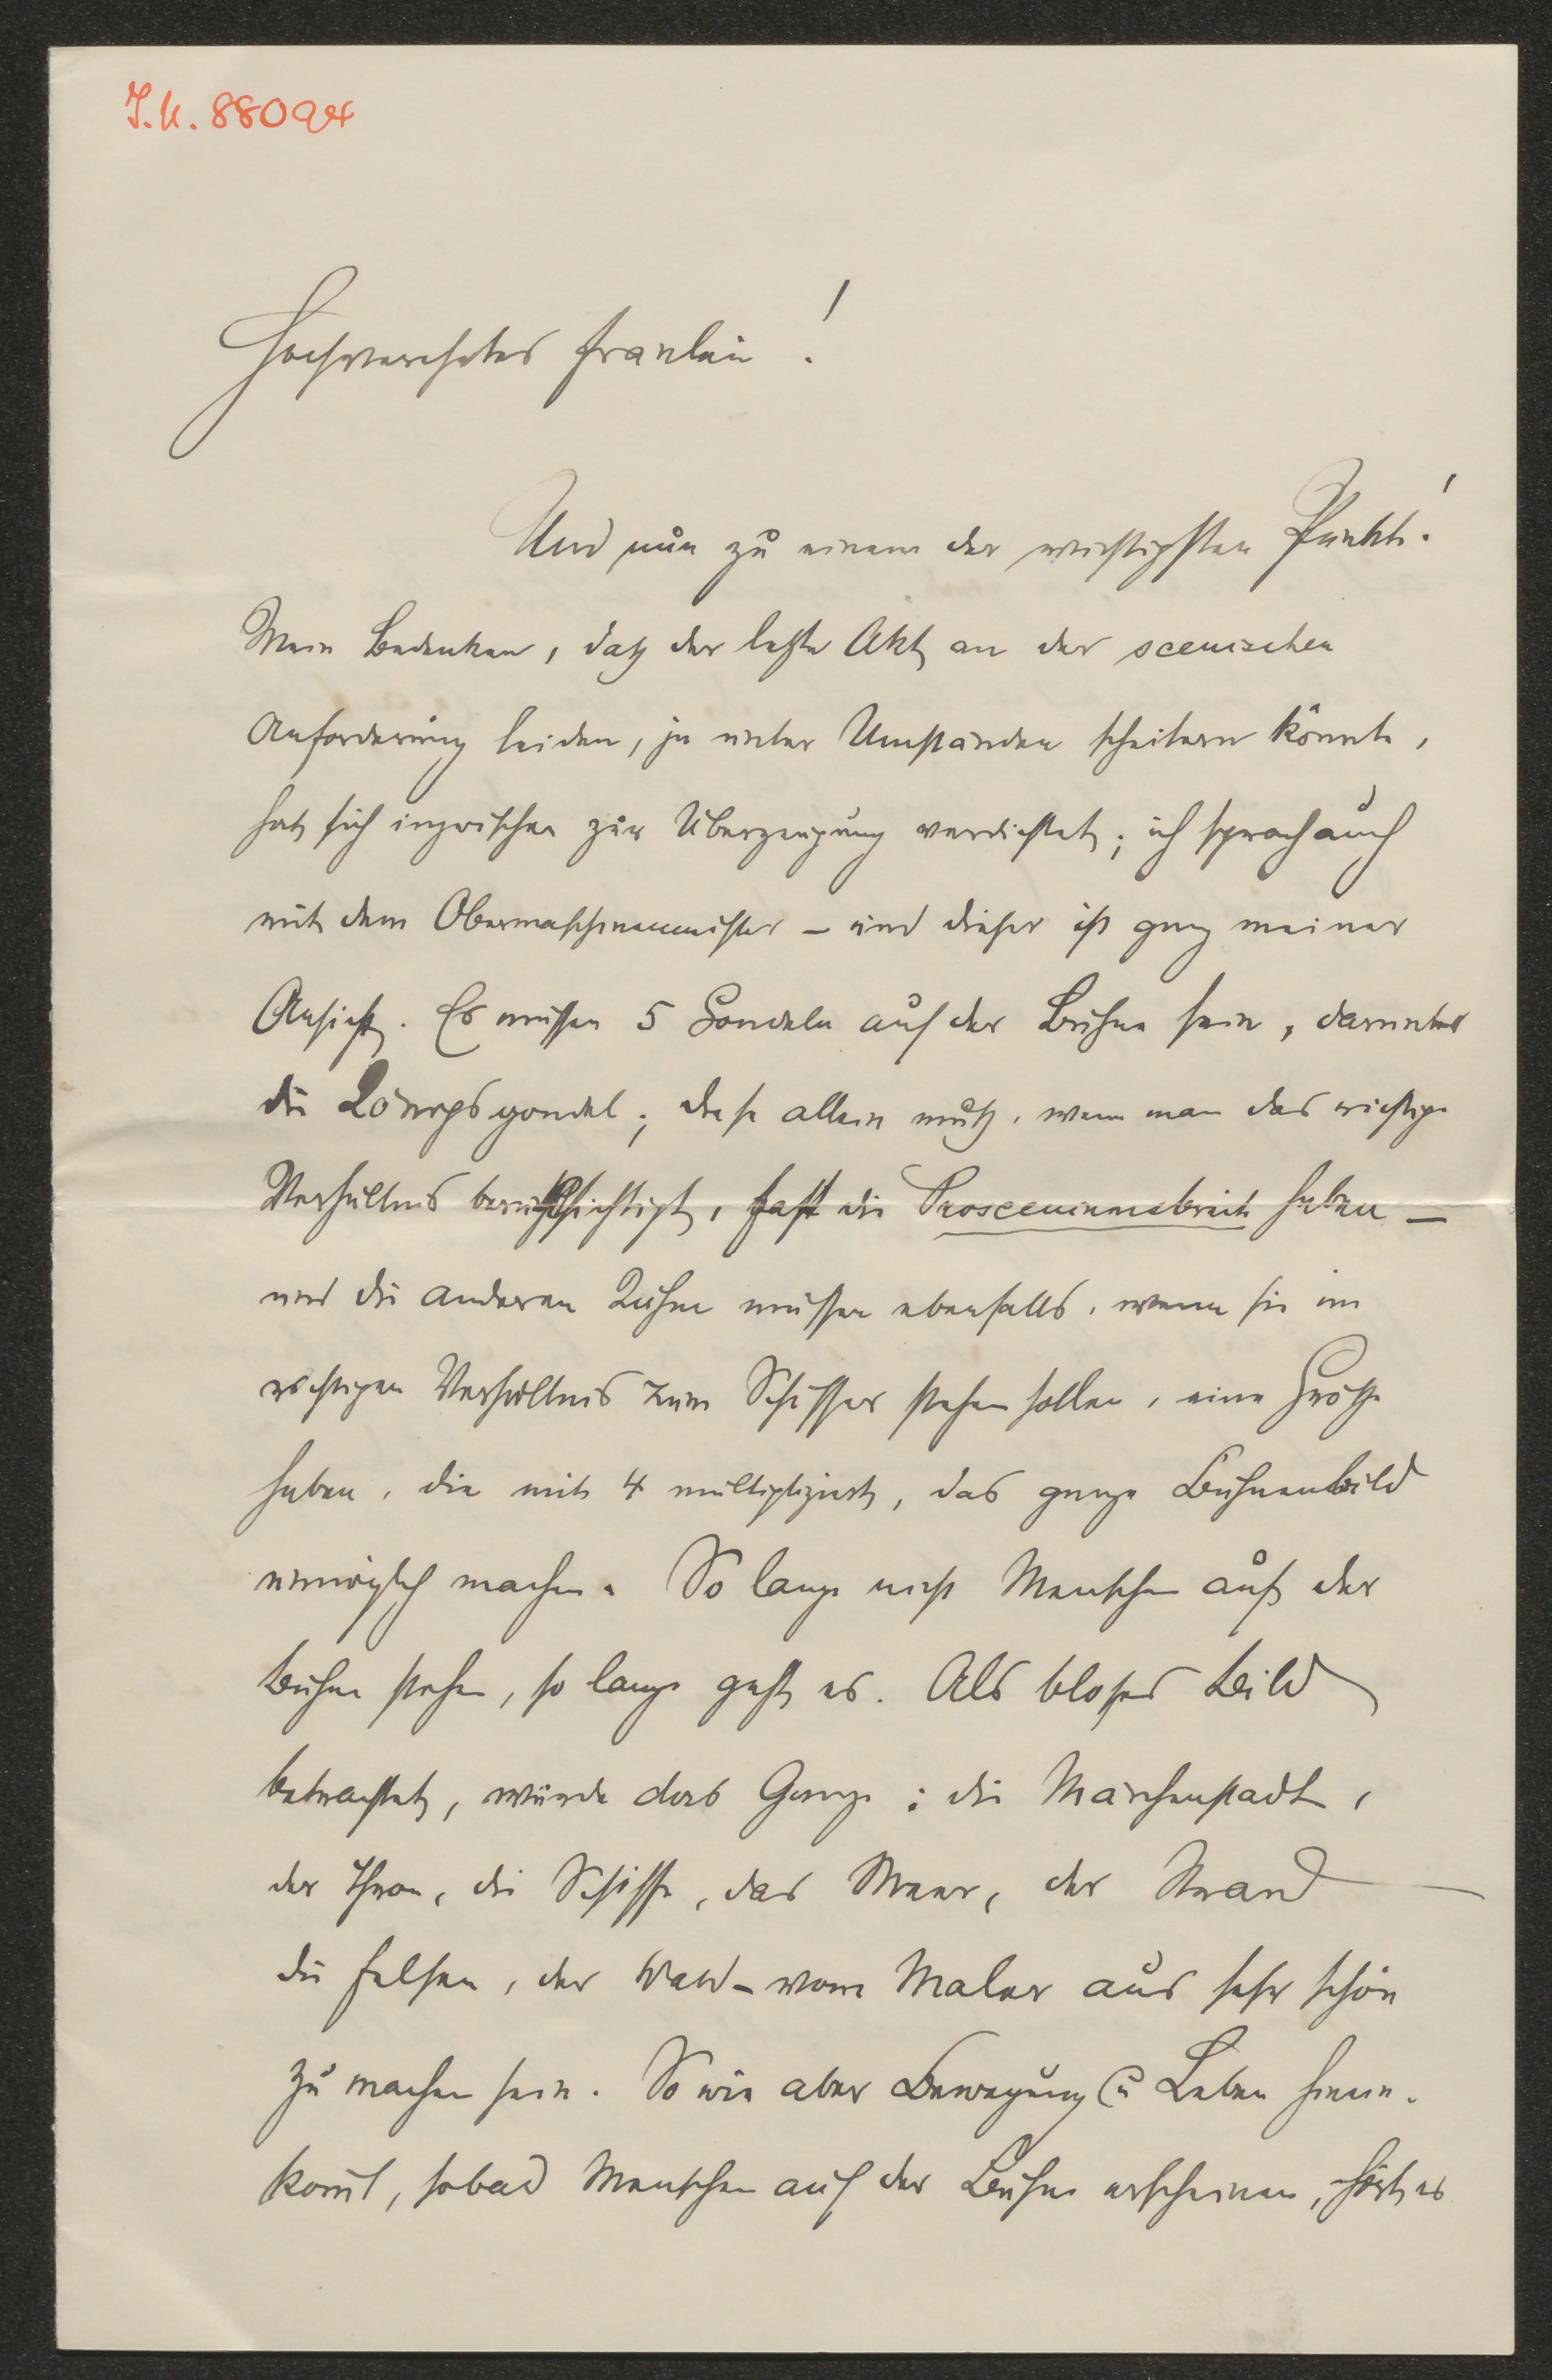 I.N. 88094
Hochverehrtes Fräulein!
Und nun zu einem der wichtigsten Punkte!
Mein Bedenken, daß der letzte Akt an der scenischen
Anforderung leiden, ja unter Umständen scheitern könnte,
hat sich inzwischen zur Überzeugung verdichtet; ich sprach auch
mit dem Obermaschinenmeister – und dieser ist ganz meiner
Ansicht. Es müssen 5 Gondeln auf der Bühne sein, darunter
die Königsgondel; diese allein muß, wenn man das richtige
Verhältnis berücksichtigt, fast die Prosceniumsbreite haben –
und die anderen Kähne müssen ebenfalls, wenn sie im
richtigen Verhältnis zum Schiffer stehen sollen, eine Größe
haben, die mit 4 multipliziert, das ganze Bühnenbild
unmöglich machen. So lange nicht Menschen auf der
Bühne stehen, so lange geht es. Als bloßes Bild
betrachtet, würde das Ganze: die Märchenstadt,
der Thron, die Schiffe, das Meer, der Strand –
die Felsen, der Wald – vom Maler aus sehr schön
zu machen sein. So wie aber Bewegung u Leben hinein-
komt, sobald Menschen auf der Bühne erscheinen, hört es